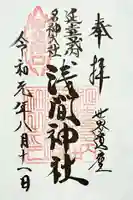 奉拝
世界遺産
延喜式内
名神大社
浅間神社
令和元年八月十一日